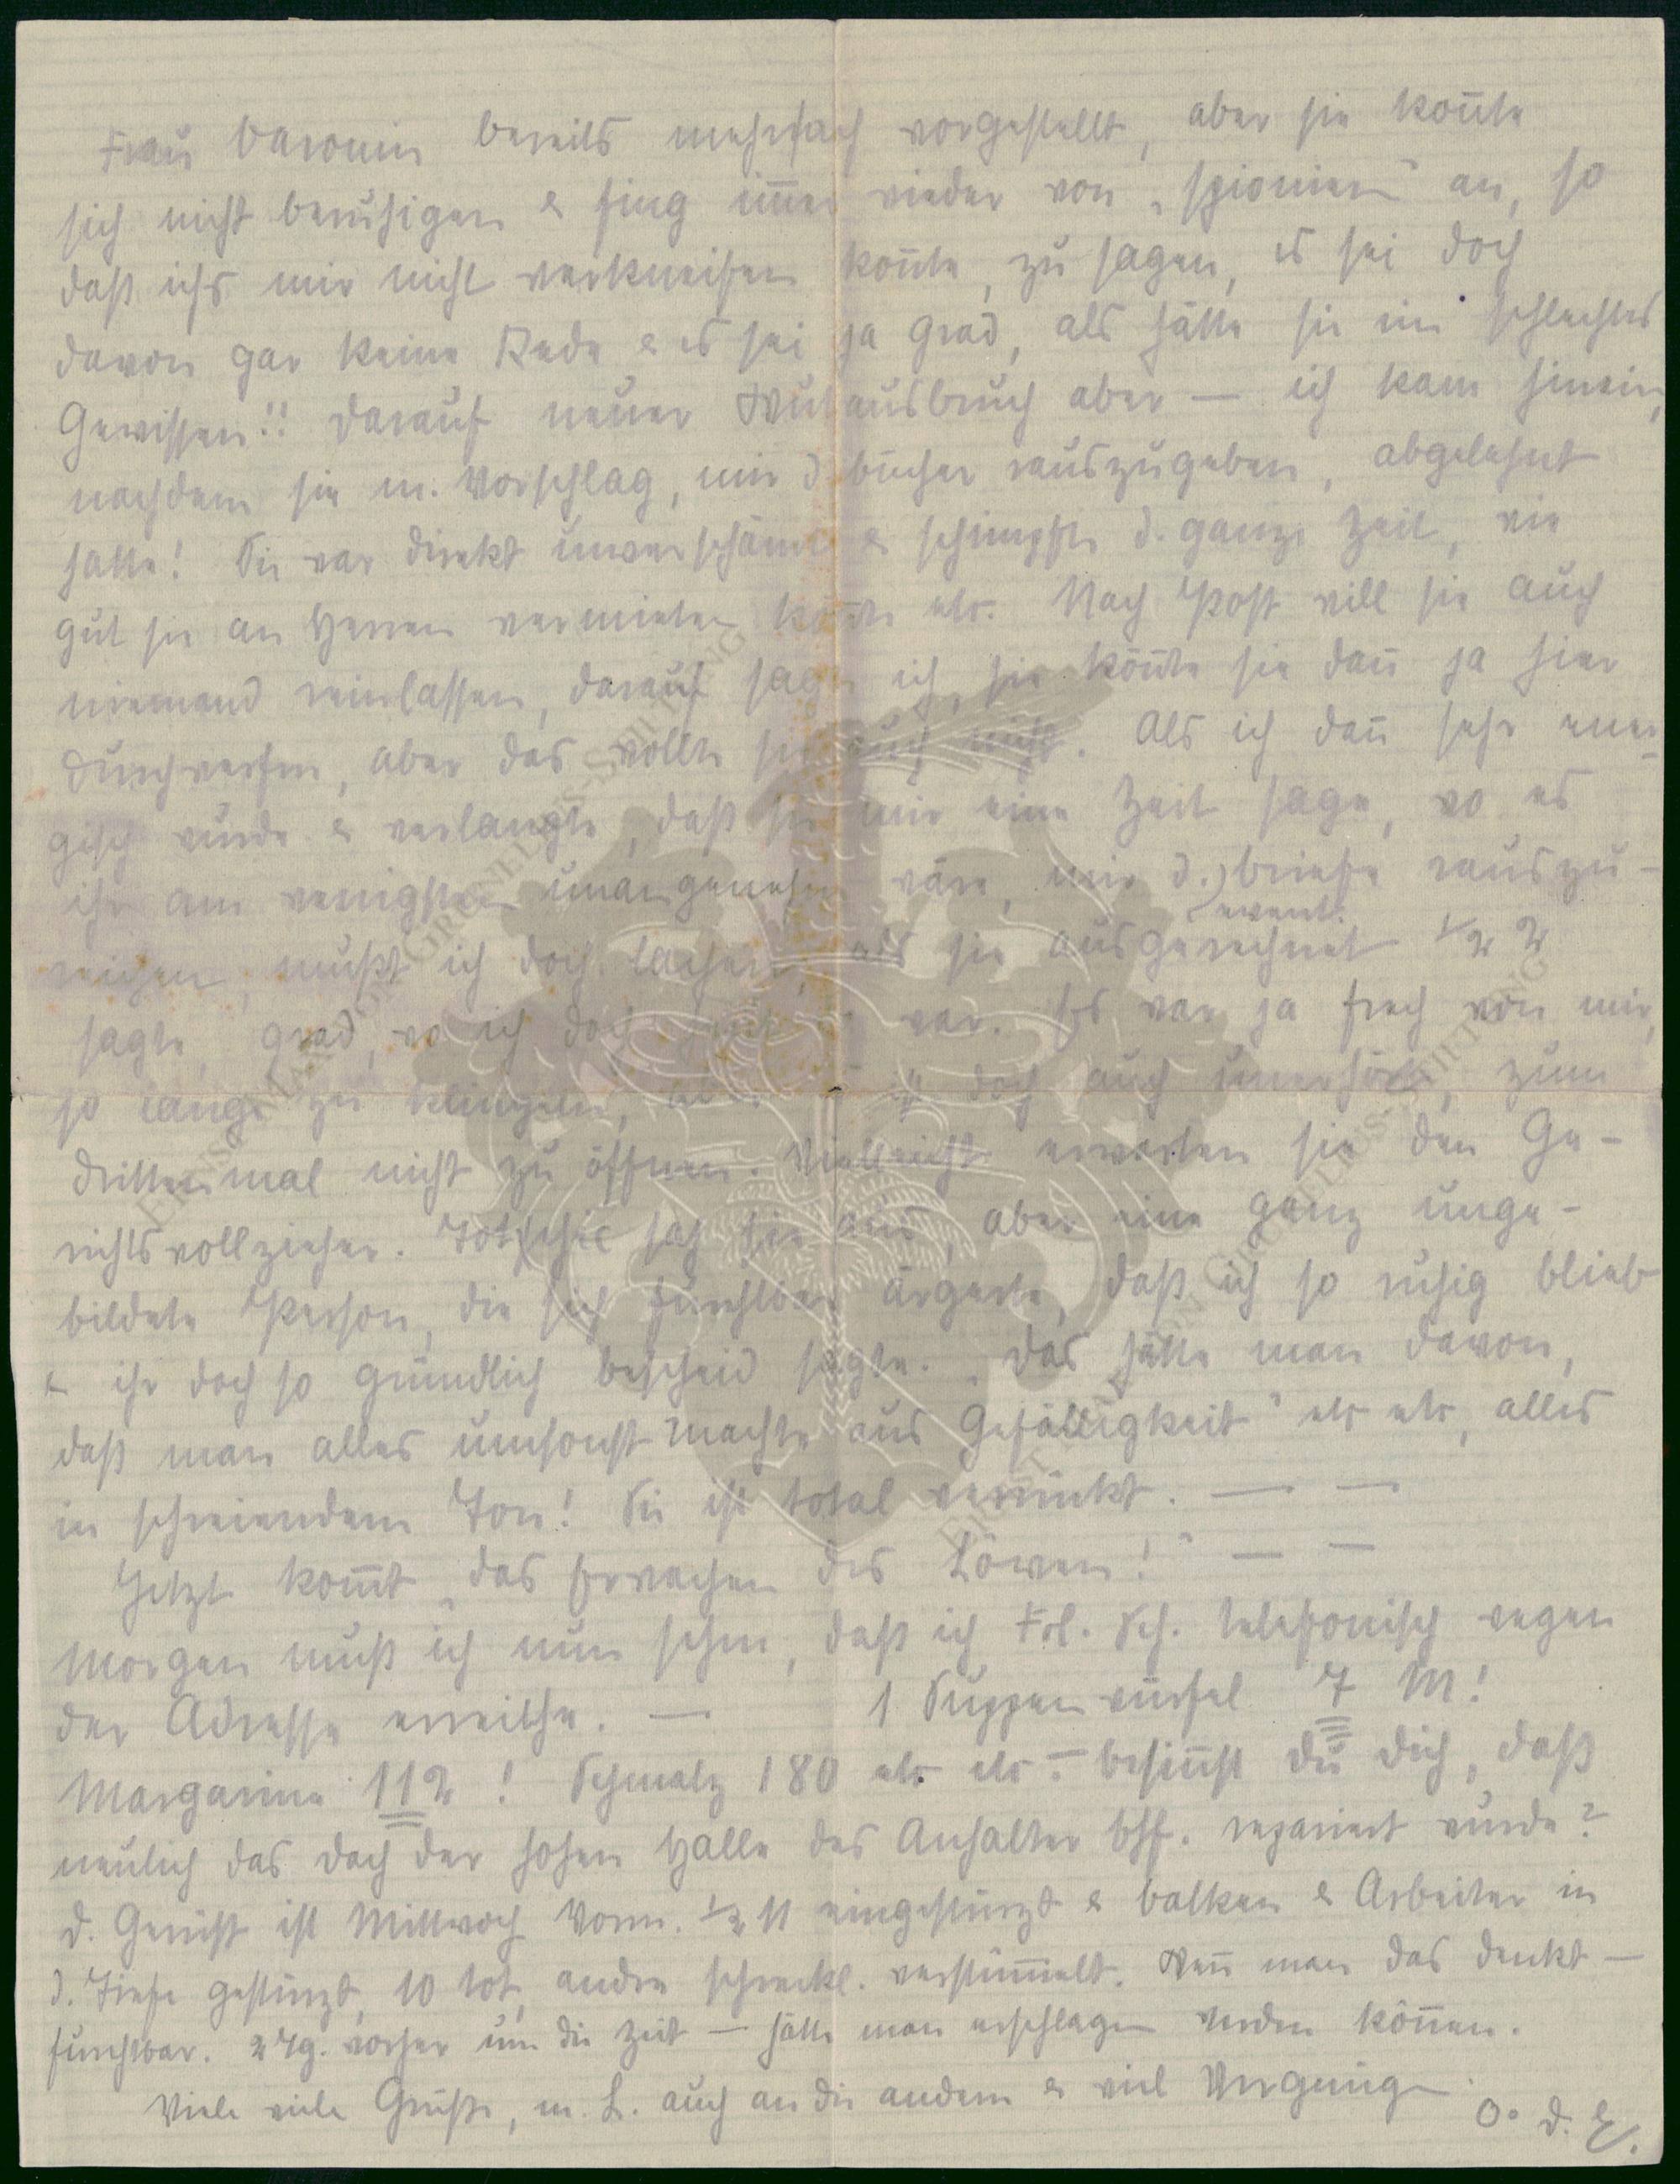 Frau Baronin bereits mehrfach vorgestellt, aber sie kon̄te
sich nicht beruhigen & fing im̄er wieder von „spionieren" an, so
daß ichs mir nicht verkneifen kon̄te, zu sagen, es sei doch
davon gar keine Rede & es sei ja grad, als hätte sie ein schlechtes
Gewissen!! Darauf neuer Wutausbruch aber — ich kam hinein,
nachdem sie m. Vorschlag, mir d. Bücher rauszugeben, abgelehnt
hatte! Sie war direkt unverschämt & schimpfte d. ganze Zeit, wie
gut sie an Herren vermieten kön̄te etc. Nach Post will sie auch
niemand reinlassen, darauf sagte ich, sie kön̄te sie dan̄ ja hier
durchwerfen, aber das wollte sie auch nicht. Als ich dan̄ sehr ener-
gisch wurde & verlangte, daß sie mir eine Zeit sage, wo es
ihr am wenigsten unangenehm wäre, mir d. event. Briefe rauszu-
reichen, mußt ich doch lachen, als sie ausgerechnet ½ 2
sagte, grad, wo ich doch war. Es war ja frech von mir,
so lange zu klingeln, aber ist doch auch unerhört, zum
drittenmal nicht zu öffnen. Vielleicht erwarten sie den Ge-
richtsvollzieher. Totschic sah sie aus, aber eine ganz unge-
bildete Person, die sich furchtbar ärgerte, daß ich so ruhig blieb
& ihr doch so gründlich bescheid sagte. „Das hätte man davon,
daß man alles umsonst machte aus Gefälligkeit" etc etc, alles
in schreiendem Ton! Sie ist total verrückt. — —
Jetzt kom̄t „das Erwachen des Löwen!" — —
Morgen muß ich nun sehen, daß ich Frl. Sch. telefonisch wegen
der Adresse erreiche. — 1 Suppenwürfel 7 M!
Margarine 112 ! Schmalz 180 etc. etc. — Besin̄st du dich, daß
neulich das Dach der hohen Halle des Anhalter Bhf. repariert wurde?
d. Gerüst ist Mittwoch Vorm. ½ 11 eingestürzt & Balken & Arbeiter in
d. Tiefe gestürzt, 10 tot, andre schreckl. verstüm̄elt. Wen̄ man das denkt —
furchtbar. 2 Tg. vorher um die Zeit — hätte man erschlagen werden kön̄en.
Viele viele Grüße, m. L. auch an die andern & viel Vergnügen
O. d. E.